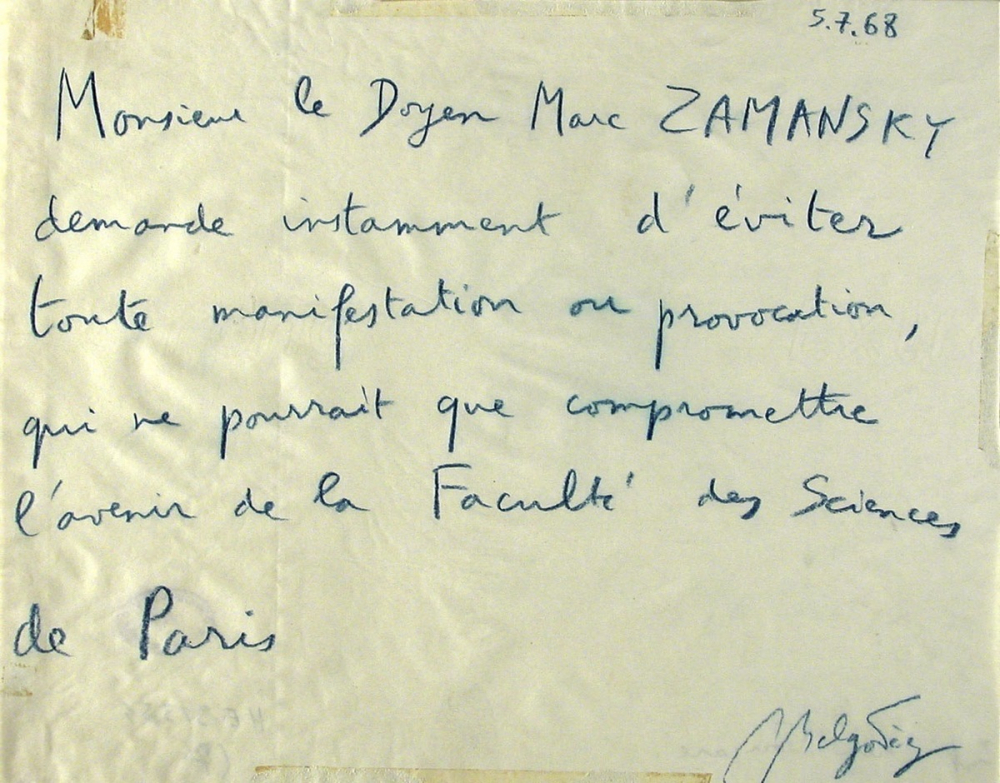 5.7.68
Monsieur le Doyen Marc ZAMANSKY
demande instamment d'éviter
toute manifestation ou provocation,
qui ne pourrait que compromettre
l'avenir de la Faculté des Sciences
de Paris